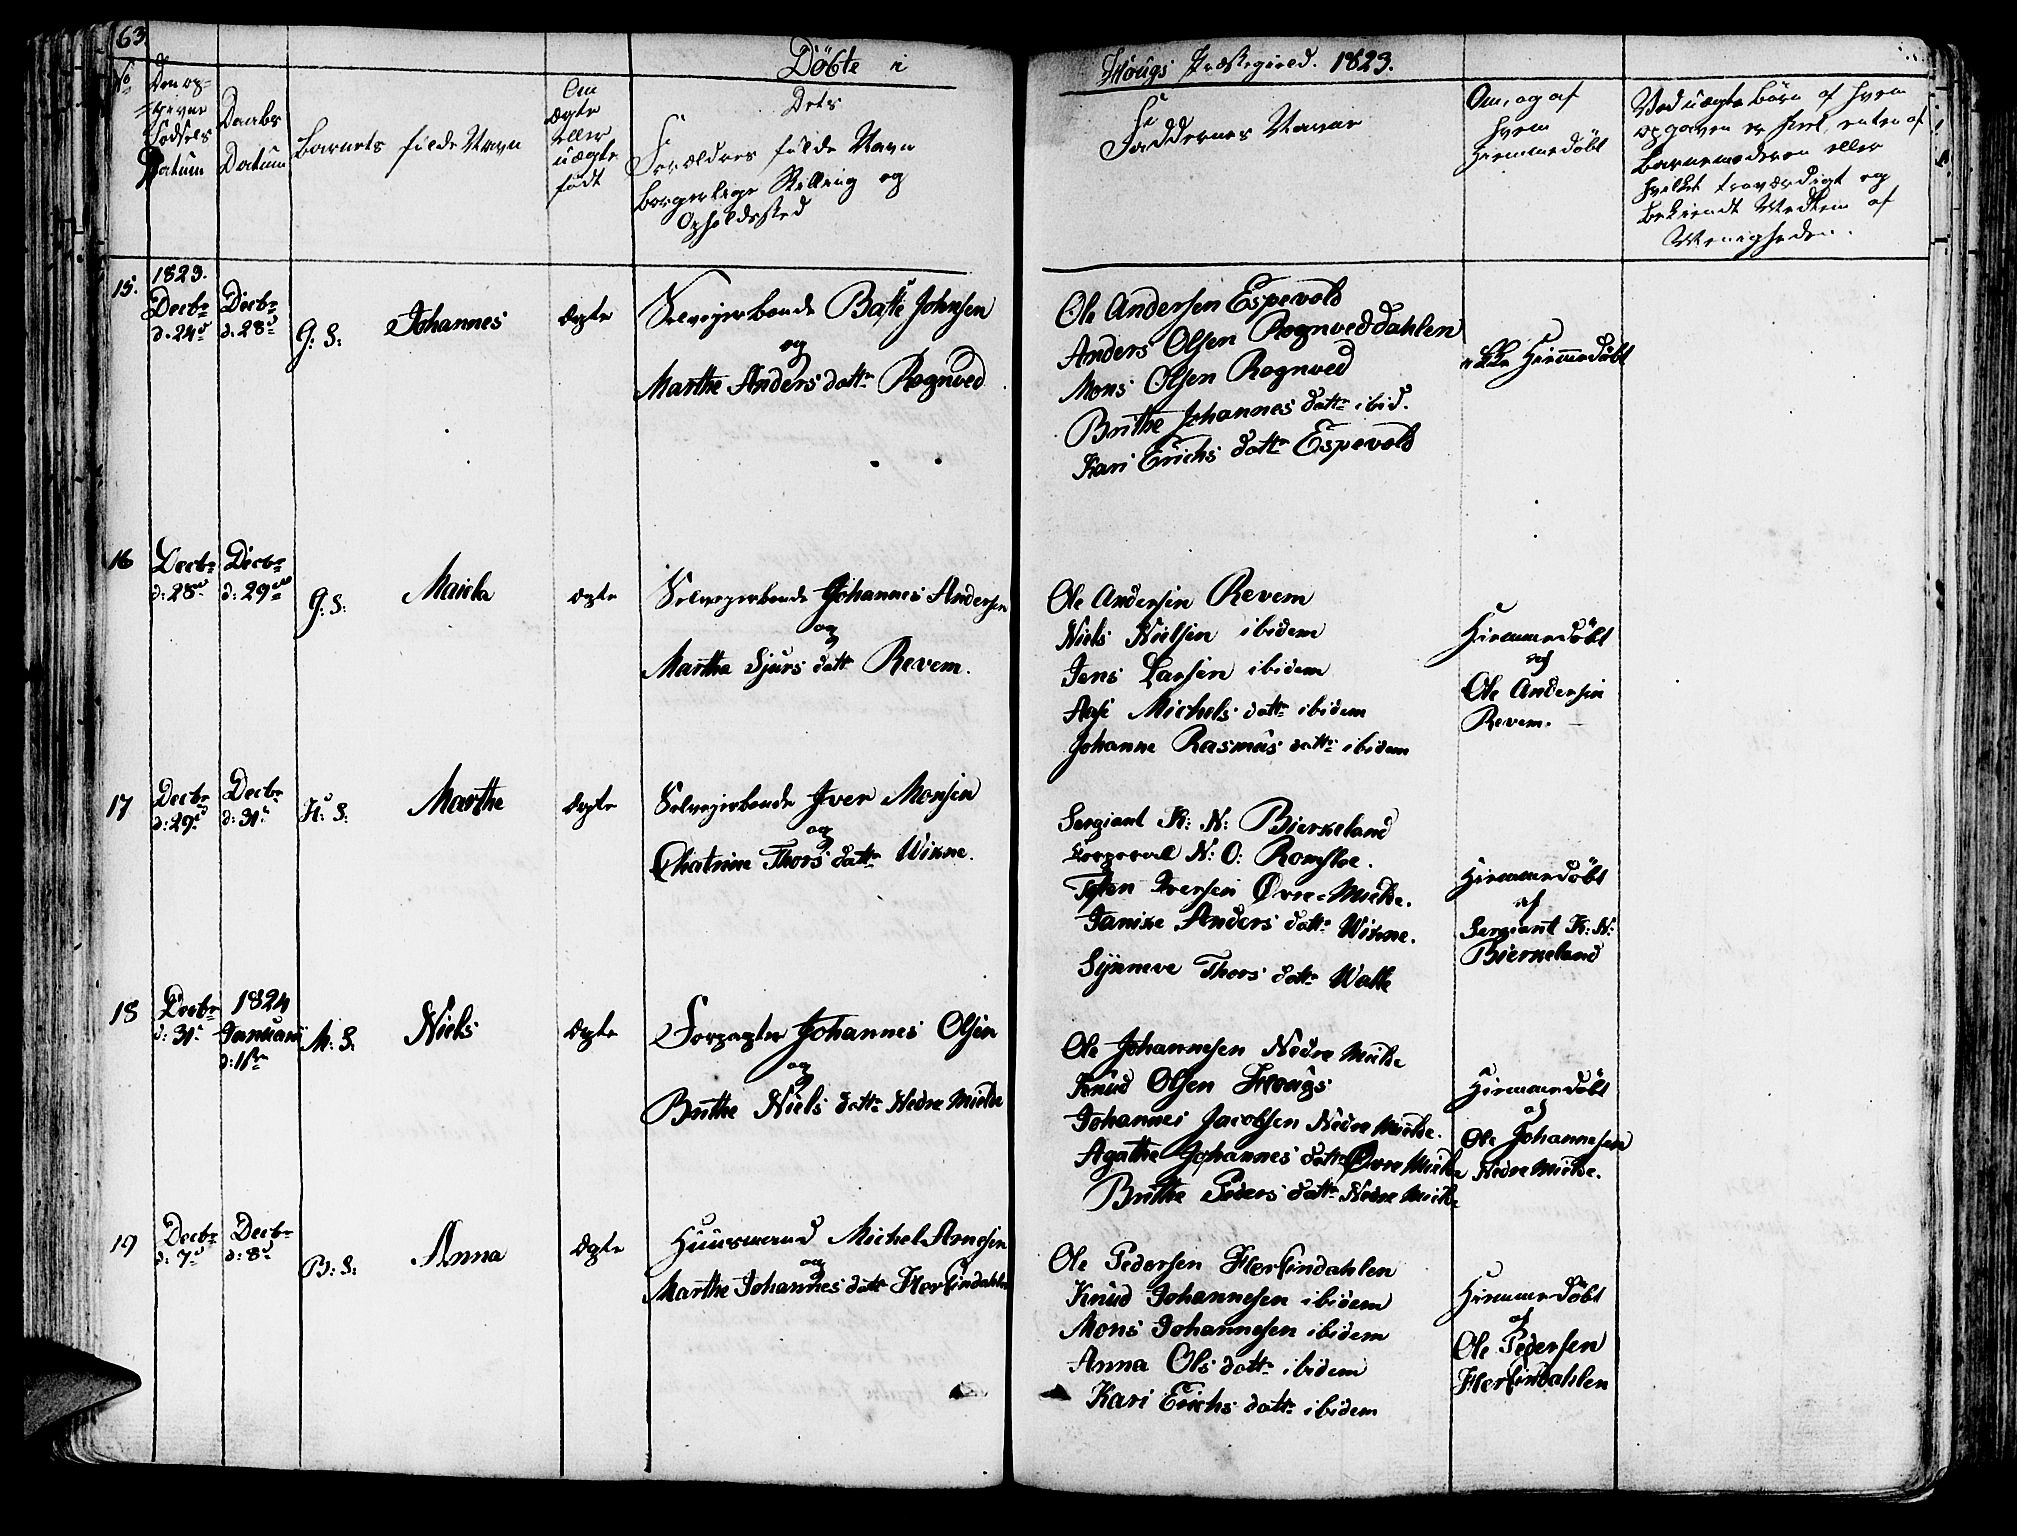 63
Döbte i Hougs Præstegield. 1823.
No
Den op-
givne
Födsels
Datum
Daabs
Datum
Barnets fulde Navn
Om
ægte
eller
uægte
födt
Dets
Forældres fulde Navn
borgerlige Stilling og
Opholdssted
Faddernes Navne
Om, og af
hvem
hiemmedöbt
Ved uægte börn af hvem
opgaven er skeet, enten af
barnemoderen eller
hvilket troværdigt og
bekiendt Medlem af
Menigheden.
15.
1823.
Decbr
d. 24d
Decbr
d. 28d
G: S:
Johannes
ægte
Selveierbonde Botte Johnsen
og
Marthe Anders dattr Rognved
Ole Andersen Espevold
Anders Olsen Rognveddahlen
Mons Olsen Rognved
Brithe Johannes dattr ibid.
Kari Erichs dattr Espevold
ikke Hiemedöbt
16
Decbr
d: 28
Decbr
d: 29
G: S:
ægte
Selveierbonde Johannes Andersen
og
Marthe Sjurs datt Revem.
Ole Andersen Revem
Niels Nielsen ibidem
Jens Larsen ibidem
Michels dattr ibidem
Johanne Rasmus dattr ibidem
Hiemmedöbt
af
Ole Andersen
Revem.
17
Decbr
d: 29
Decbr
d: 31
H: S:
Marthe
ægte
Selveierbonde Iver Monsen
og
Chatrine Thors dattr Winne.
Sergiant K: N: Bierkeland
Korporall N: O: Romsloe.
Iversen Øvre-Mielde.
Janike Anders dattr Winne.
Synneve Thors dattr Walle
Hiemmedöbt
af
Sergiant K: N:
Bierkeland
18
Decbr
d: 31
1824
Januari
d: 1ste
M: S:
Niels
ægte
Forpagter Johannes Olsen
og
Brithe Niels dattr Nedre Mielde
Ole Johannesen Nedre Mielde
Knud Olsen Hougs
Johannes Jacobsen Nedre Mielde.
Agathe Johannes dattr Øvre Mielde
Brithe Peders dattr Nedre Mielde
Hiemmedöbt
af
Ole Johannesen
Nedre Mielde.
19
Decbr
d: 7d
Decbr
d: 8d
B: S:
Anna
ægte
Huusmand Michel Arnesen
og
Marthe Johannes datt Herfindahlen
Ole Pedersen Herfindahlen
Knud Johannesen ibidem
Mons Johannesen ibidem
Anna Ols dattr ibidem
Kari Erichs dattr ibidem
Hiemmedöbt
af
Ole Pedersen
Herfindahlen